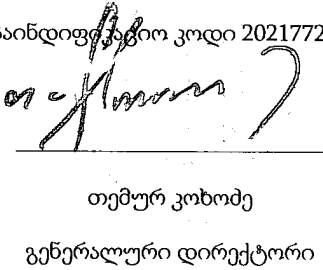 საინდიფიკაციო კოდი 2021772
თემურ კოხოძე
გენერალური დირექტორი